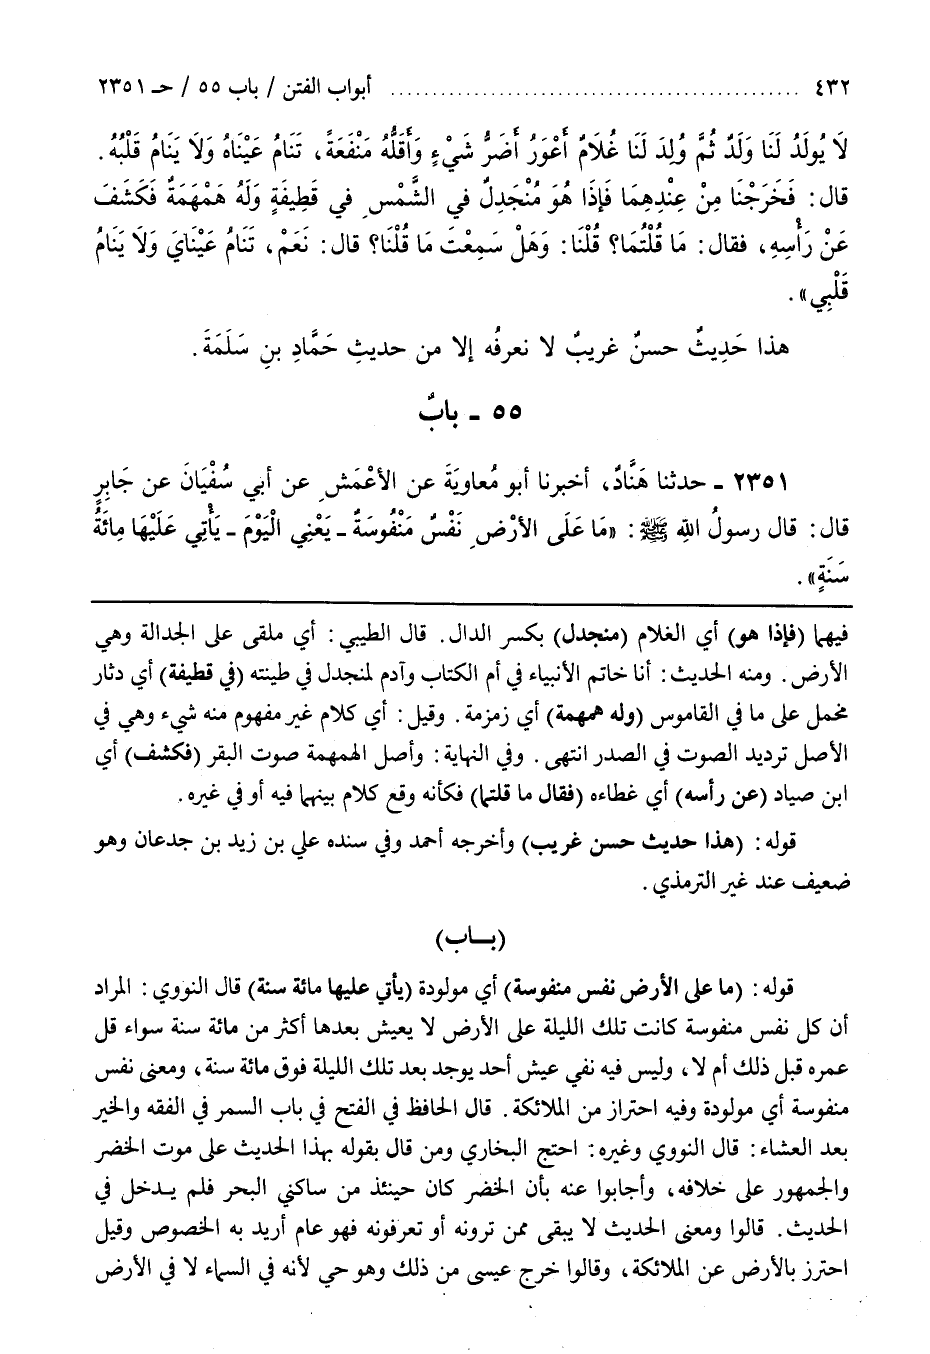 ٤٣٢ ................................................ أبواب الفتن / باب ٥٥ / حـ ٢٣٥١
لَا يُولَدُ لَنَا وَلَدٌ ثُمَّ وُلِدَ لَنَا غُلَامٌ أَعْوَرُ أَضَرُّ شَيْءٍ وَأَقَلُّهُ مَنْفَعَةً، تَنَامُ عَيْنَاهُ وَلَا يَنَامُ قَلْبُهُ.
قال: فَخَرَجْنَا مِنْ عِنْدِهِمَا فَإِذَا هُوَ مُنْجَدِلٌ في الشَّمْسِ في قَطِيفَةٍ وَلَهُ هَمْهَمَةٌ فَكَشَفَ
عَنْ رَأْسِهِ، فقال: مَا قُلْتُمَا؟ قُلْنَا: وَهَلْ سَمِعْتَ مَا قُلْنَا؟ قال: نَعَمْ، تَنَامُ عَيْنَايَ وَلَا يَنَامُ
قَلْبِي».
هذا حَدِيثٌ حسنٌ غريبٌ لا نعرفُه إلا من حديثِ حَمَّادِ بنِ سَلَمَةَ.
٥٥ ـ بابٌ
٢٣٥١ ـ حدثنا هَنَّادٌ، أخبرنا أبو مُعاويَةَ عن الأعْمَشِ عن أبي سُفْيَانَ عن جَابِرٍ
قال: قال رسولُ اللهِ ﷺ: «مَا عَلَى الأرْضِ نَفْسٌ مَنْفُوسَةٌ ـ يَعْنِي الْيَوْمَ ـ يَأْتِي عَلَيْهَا مِائَةُ
سَنَةٍ».
فيهما (فإذا هو) أي الغلام (منجدل) بكسر الدال. قال الطيبي: أي ملقى على الجدالة وهي
الأرض. ومنه الحديث: أنا خاتم الأنبياء في أم الكتاب وآدم لمنجدل في طينته (في قطيفة) أي دثار
مخمل على ما في القاموس (وله همهمة) أي زمزمة. وقيل: أي كلام غير مفهوم منه شيء وهي في
الأصل ترديد الصوت في الصدر انتهى. وفي النهاية: وأصل الهمهمة صوت البقر (فكشف) أي
ابن صياد (عن رأسه) أي غطاءه (فقال ما قلتما) فكأنه وقع كلام بينهما فيه أو في غيره.
قوله: (هذا حديث حسن غريب) وأخرجه أحمد وفي سنده علي بن زيد بن جدعان وهو
ضعيف عند غير الترمذي.
(بــاب)
قوله: (ما على الأرض نفس منفوسة) أي مولودة (يأتي عليها مائة سنة) قال النووي: المراد
أن كل نفس منفوسة كانت تلك الليلة على الأرض لا يعيش بعدها أكثر من مائة سنة سواء قل
عمره قبل ذلك أم لا، وليس فيه نفي عيش أحد يوجد بعد تلك الليلة فوق مائة سنة، ومعنى نفس
منفوسة أي مولودة وفيه احتراز من الملائكة. قال الحافظ في الفتح في باب السمر في الفقه والخير
بعد العشاء: قال النووي وغيره: احتج البخاري ومن قال بقوله بهذا الحديث على موت الخضر
والجمهور على خلافه، وأجابوا عنه بأن الخضر كان حينئذ من ساكني البحر فلم يـدخل في
الحديث. قالوا ومعنى الحديث لا يبقى ممن ترونه أو تعرفونه فهو عام أريد به الخصوص وقيل
احترز بالأرض عن الملائكة، وقالوا خرج عيسى من ذلك وهو حي لأنه في السماء لا في الأرض